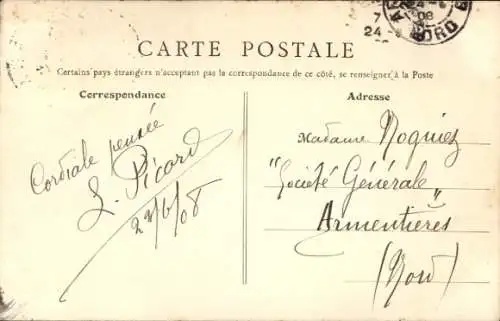 7
24 -
24 - 6
08
NORD
CARTE POSTALE
Certains pays étrangers n'acceptant pas la correspondance de ce côté, se renseigner à la Poste
Correspondance
Adresse
Cordiale pensée
L. Picard
23/6/08
Madame Noquiez
"Société Générale"
Armentières
(Nord)